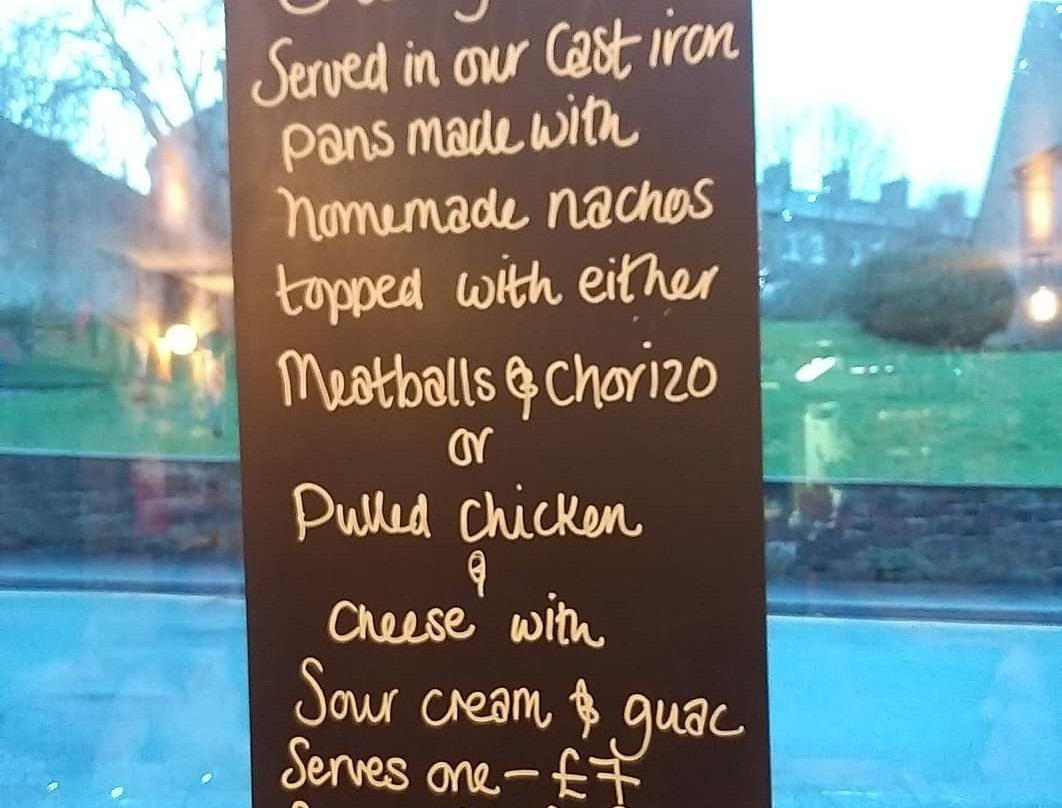 Served in our Cast iron
pans made with
homemade nachos
topped with either
Meatballs & Chorizo
or
Pulled chicken
&
Cheese with
Sour cream & guac
Serves one - £7